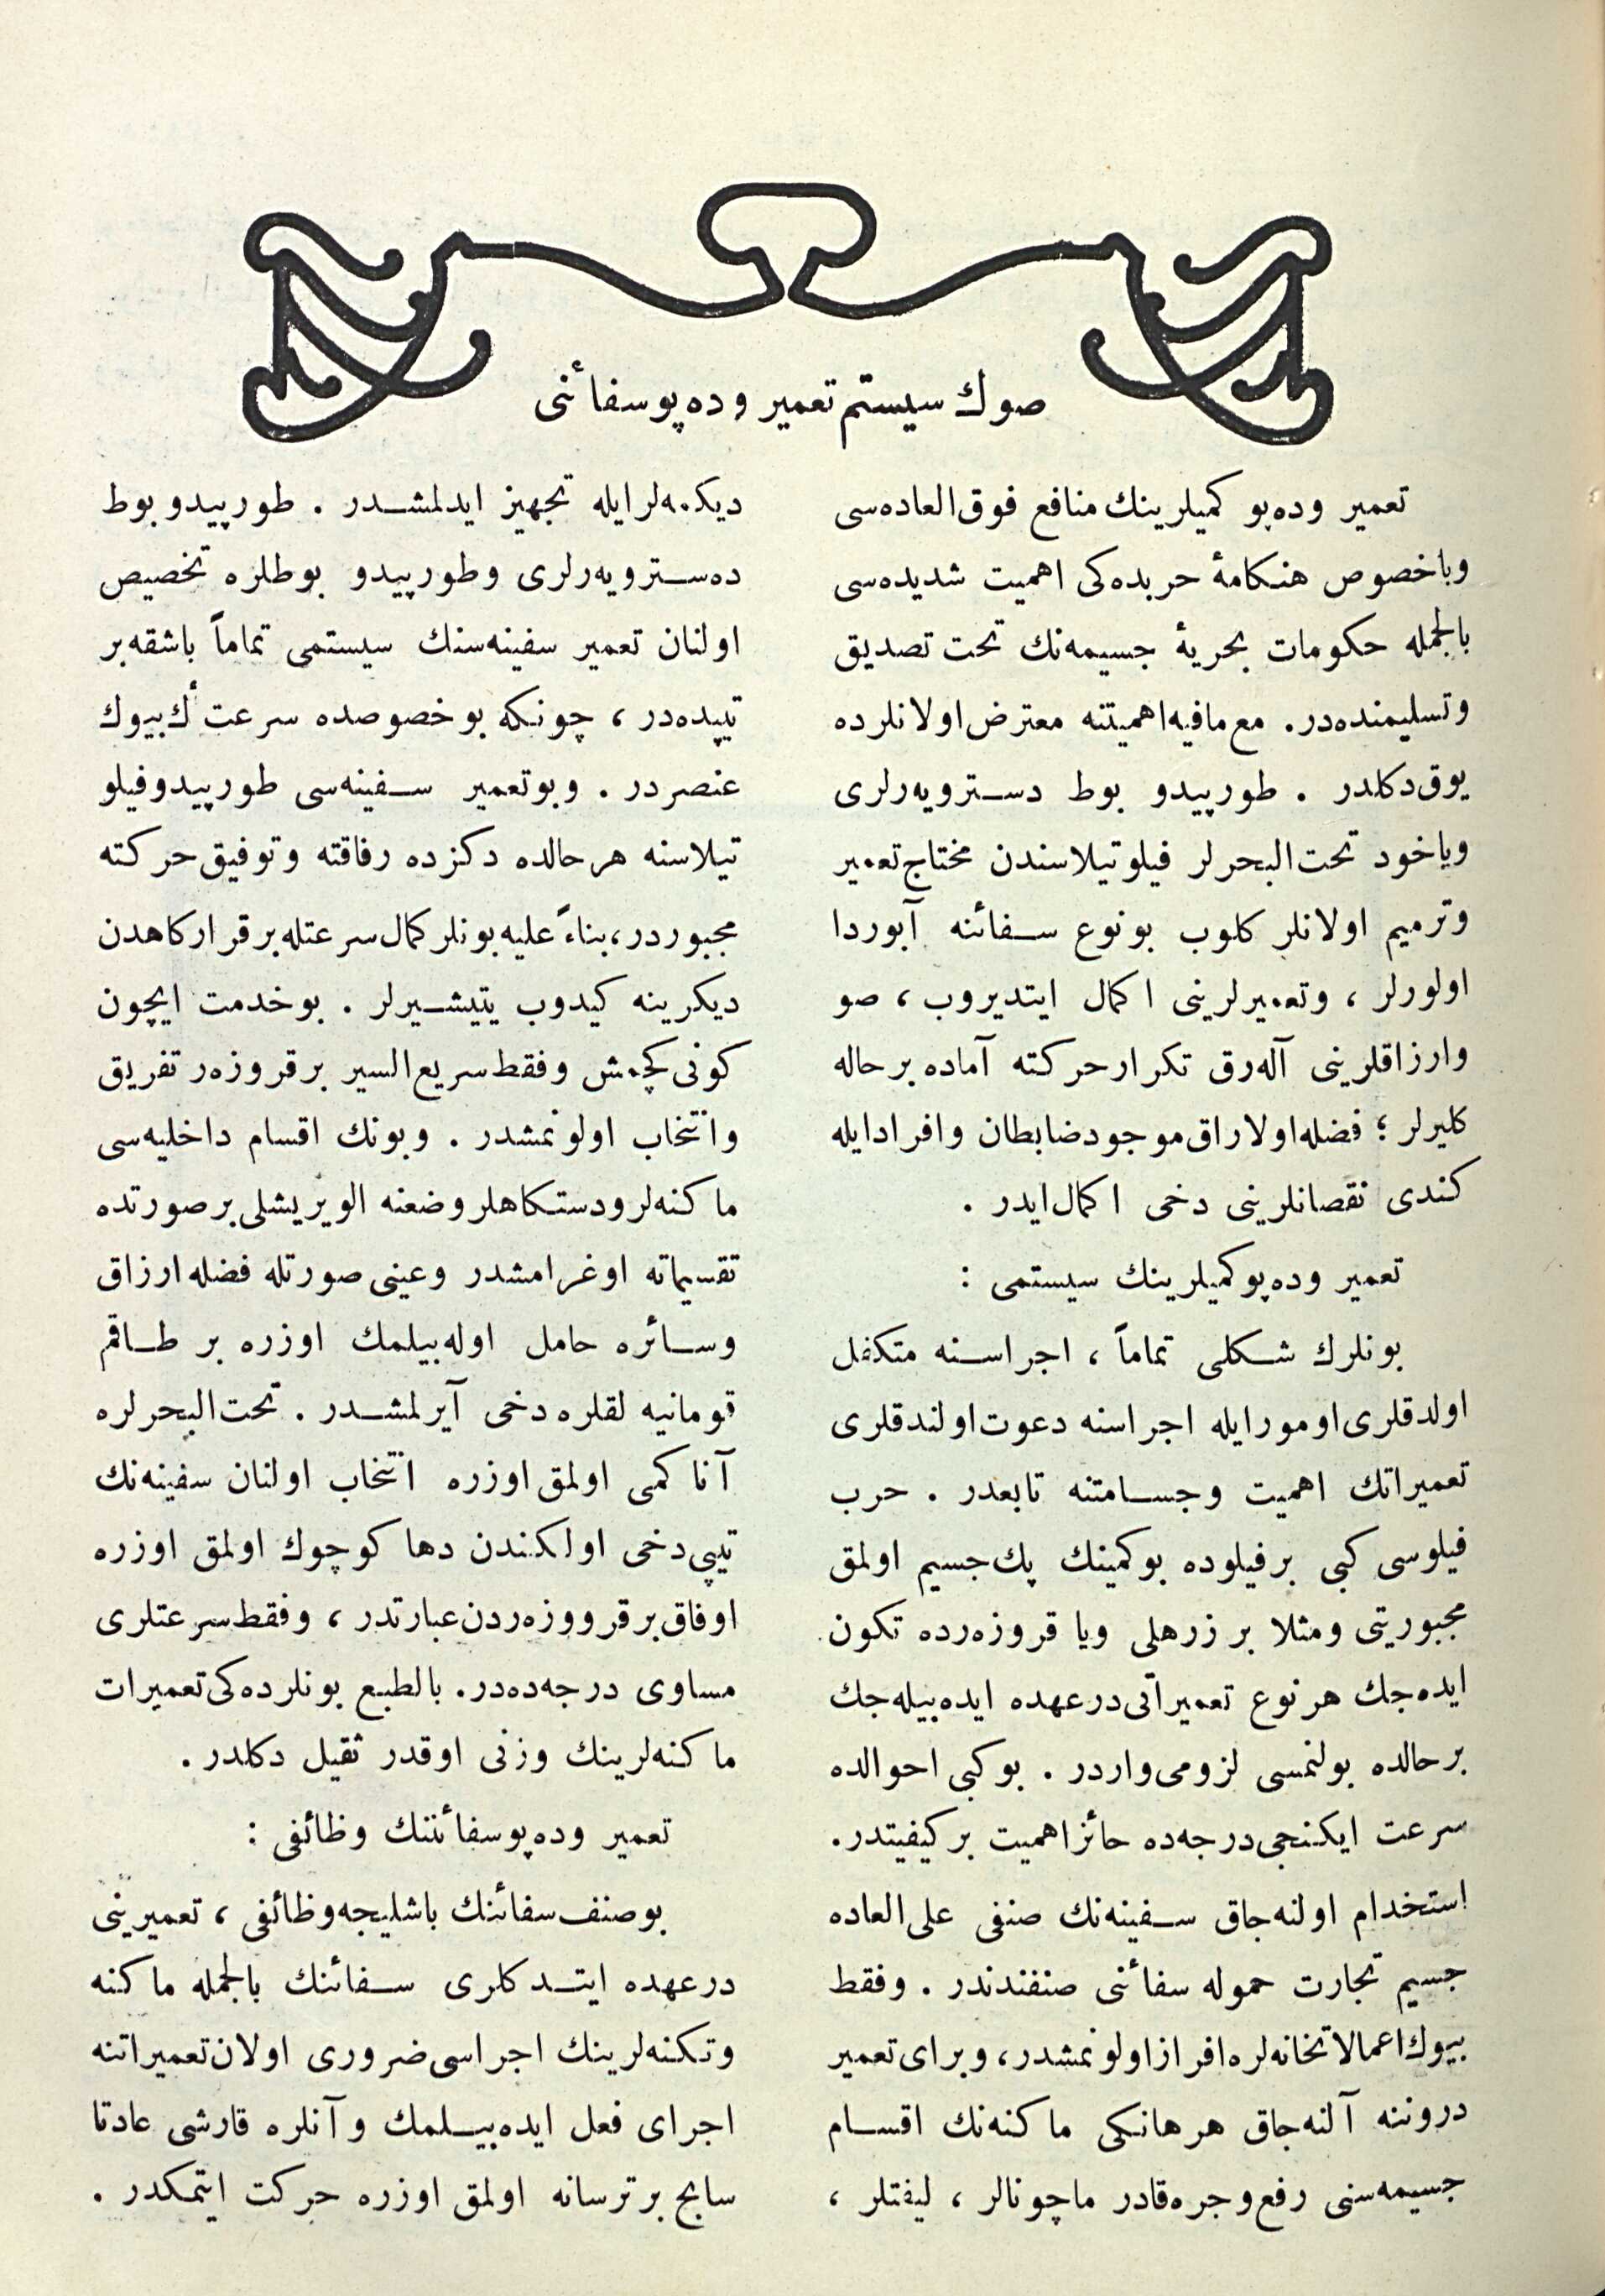 صوك سيستم تعمير وده‌پو سفائنی
تعمير وده‌پو كميلرينك منافع فوق‌العاده‌سی
وباخصوص هنكامهٔ حربده‌كی اهميت شديده‌سی
بالجمله حكومات بحريهٔ جسيمه‌نك تحت تصديق
وتسليمنده‌در. مع‌مافيه اهميتنه معترض اولانلرده
يوق دكلدر . طورپيدو بوط دسترويه‌رلری
وياخود تحت‌البحرلر فيلوتيلاسندن محتاج تعمير
وترميم اولانلر كلوب بونوع سفائنه آبوردا
اولورلر ، وتعميرلرينی اكمال ايتديروب ، صو
وارزاقلرينی آله‌رق تكرار حركته آماده برحاله
كليرلر ؛ فضله اولاراق موجود ضابطان وافرادايله
كندی نقصانلرينی دخی اكمال ايدر .
تعمير وده‌پو كميلرينك سيستمی :
بونلرك شكلی تماماً ، اجراسنه متكفل
اولدقلری امورايله اجراسنه دعوت اولندقلری
تعميراتك اهميت وجسامتنه تابعدر . حرب
فيلوسی كبی برفيلوده بوكمينك پك جسيم اولمق
مجبوريتی ومثلا بر زرهلی ويا قروزه‌رده تكون
ايده‌جك هرنوع تعميراتی درعهده ايده‌بيله‌جك
برحالده بولنمسی لزومی واردر . بوكبی احوالده
سرعت ايكنجی درجه‌ده حائز اهميت بركيفيتدر.
استخدام اولنه‌جاق سفينه‌نك صنفی علی‌العاده
جسيم تجارت حموله سفائنی صنفندندر . وفقط
بيوك اعمالاتخانه‌لره افراز اولونمشدر، وبرای تعمير
دروننه آلنه‌جاق هرهانكی ماكنه‌نك اقسام
جسيمه‌سنی رفع وجره قادر ماچونالر ، ليفتلر ،
ديكمه‌لرايله تجهيز ايدلمشدر . طورپيدو بوط
ده‌سترويه‌رلری وطورپيدو بوطلره تخصيص
اولنان تعمير سفينه‌سنك سيستمی تماماً باشقه‌بر
تيپده‌در ، چونكه بوخصوصده سرعت أك بيوك
عنصردر . وبوتعمير سفينه‌سی طورپيدو فيلو
تيلاسنه هرحالده دكزده رفاقته وتوفيق حركته
مجبوردر، بناءً عليه بونلر كمال سرعتله برقراركاهدن
ديكرينه كيدوب يتيشيرلر . بوخدمت ايچون
كونی كچمش وفقط سريع‌السير برقروزه‌ر تفريق
وانتخاب اولونمشدر . وبونك اقسام داخليه‌سی
ماكنه‌لرودستكاهلر وضعنه الويريشلی برصورتده
تقسيماته اوغرامشدر وعينی صورتله فضله ارزاق
وسائره حامل اوله‌بيلمك اوزره بر طاقم
قومانيه لقلره دخی آيرلمشدر . تحت‌البحرلره
آنا كمی اولمق اوزره انتخاب اولنان سفينه‌نك
تيپی دخی اولكندن دها كوچوك اولمق اوزره
اوفاق برقرووزه‌ردن عبارتدر ، وفقط سرعتلری
مساوی درجه‌ده‌در. بالطبع بونلرده‌كی تعميرات
ماكنه‌لرينك وزنی اوقدر ثقيل دكلدر .
تعمير وده‌پو سفائننك وظائفی :
بوصنف سفائنك باشليجه وظائفی ، تعميرينی
درعهده ايتدكلری سفائنك بالجمله ماكنه
وتكنه‌لرينك اجراسی ضروری اولان تعميراتنه
اجرای فعل ايده‌بيلمك وآنلره قارشی عادتا
سابح برترسانه اولمق اوزره حركت ايتمكدر .